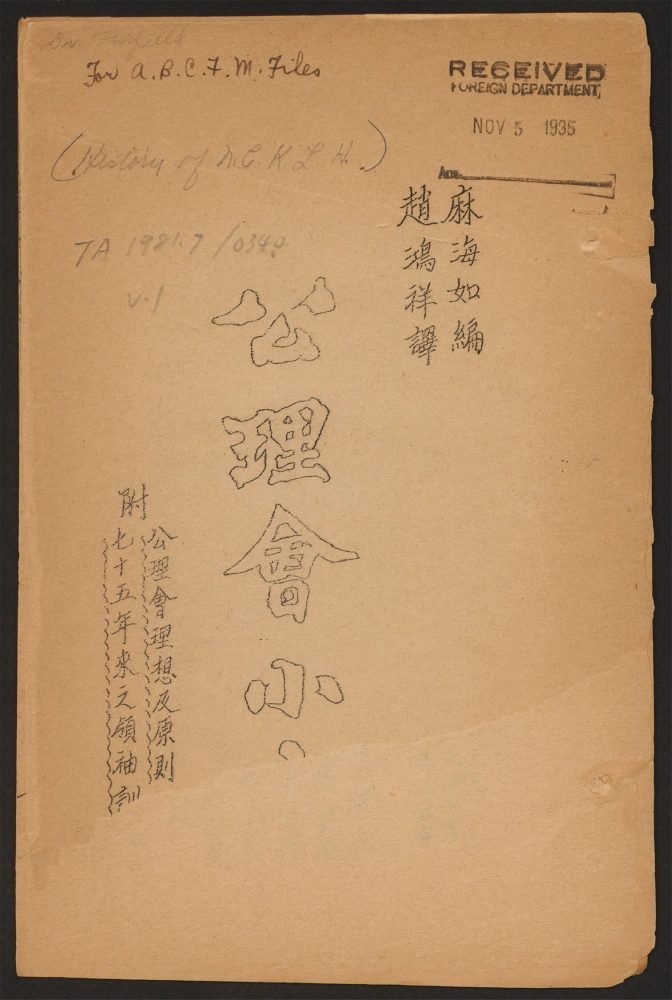 For A.B.C.F.M. Files
RECEIVED
FOREIGN DEPARTMENT,
NOV 5 1935
Ans.
(History of N.C.K.L.H.)
TA 1981.7/0340
v.1
麻海如編
趙鴻祥譯
公理會小
附
公理會理想及原則
七十五年來之領袖訓